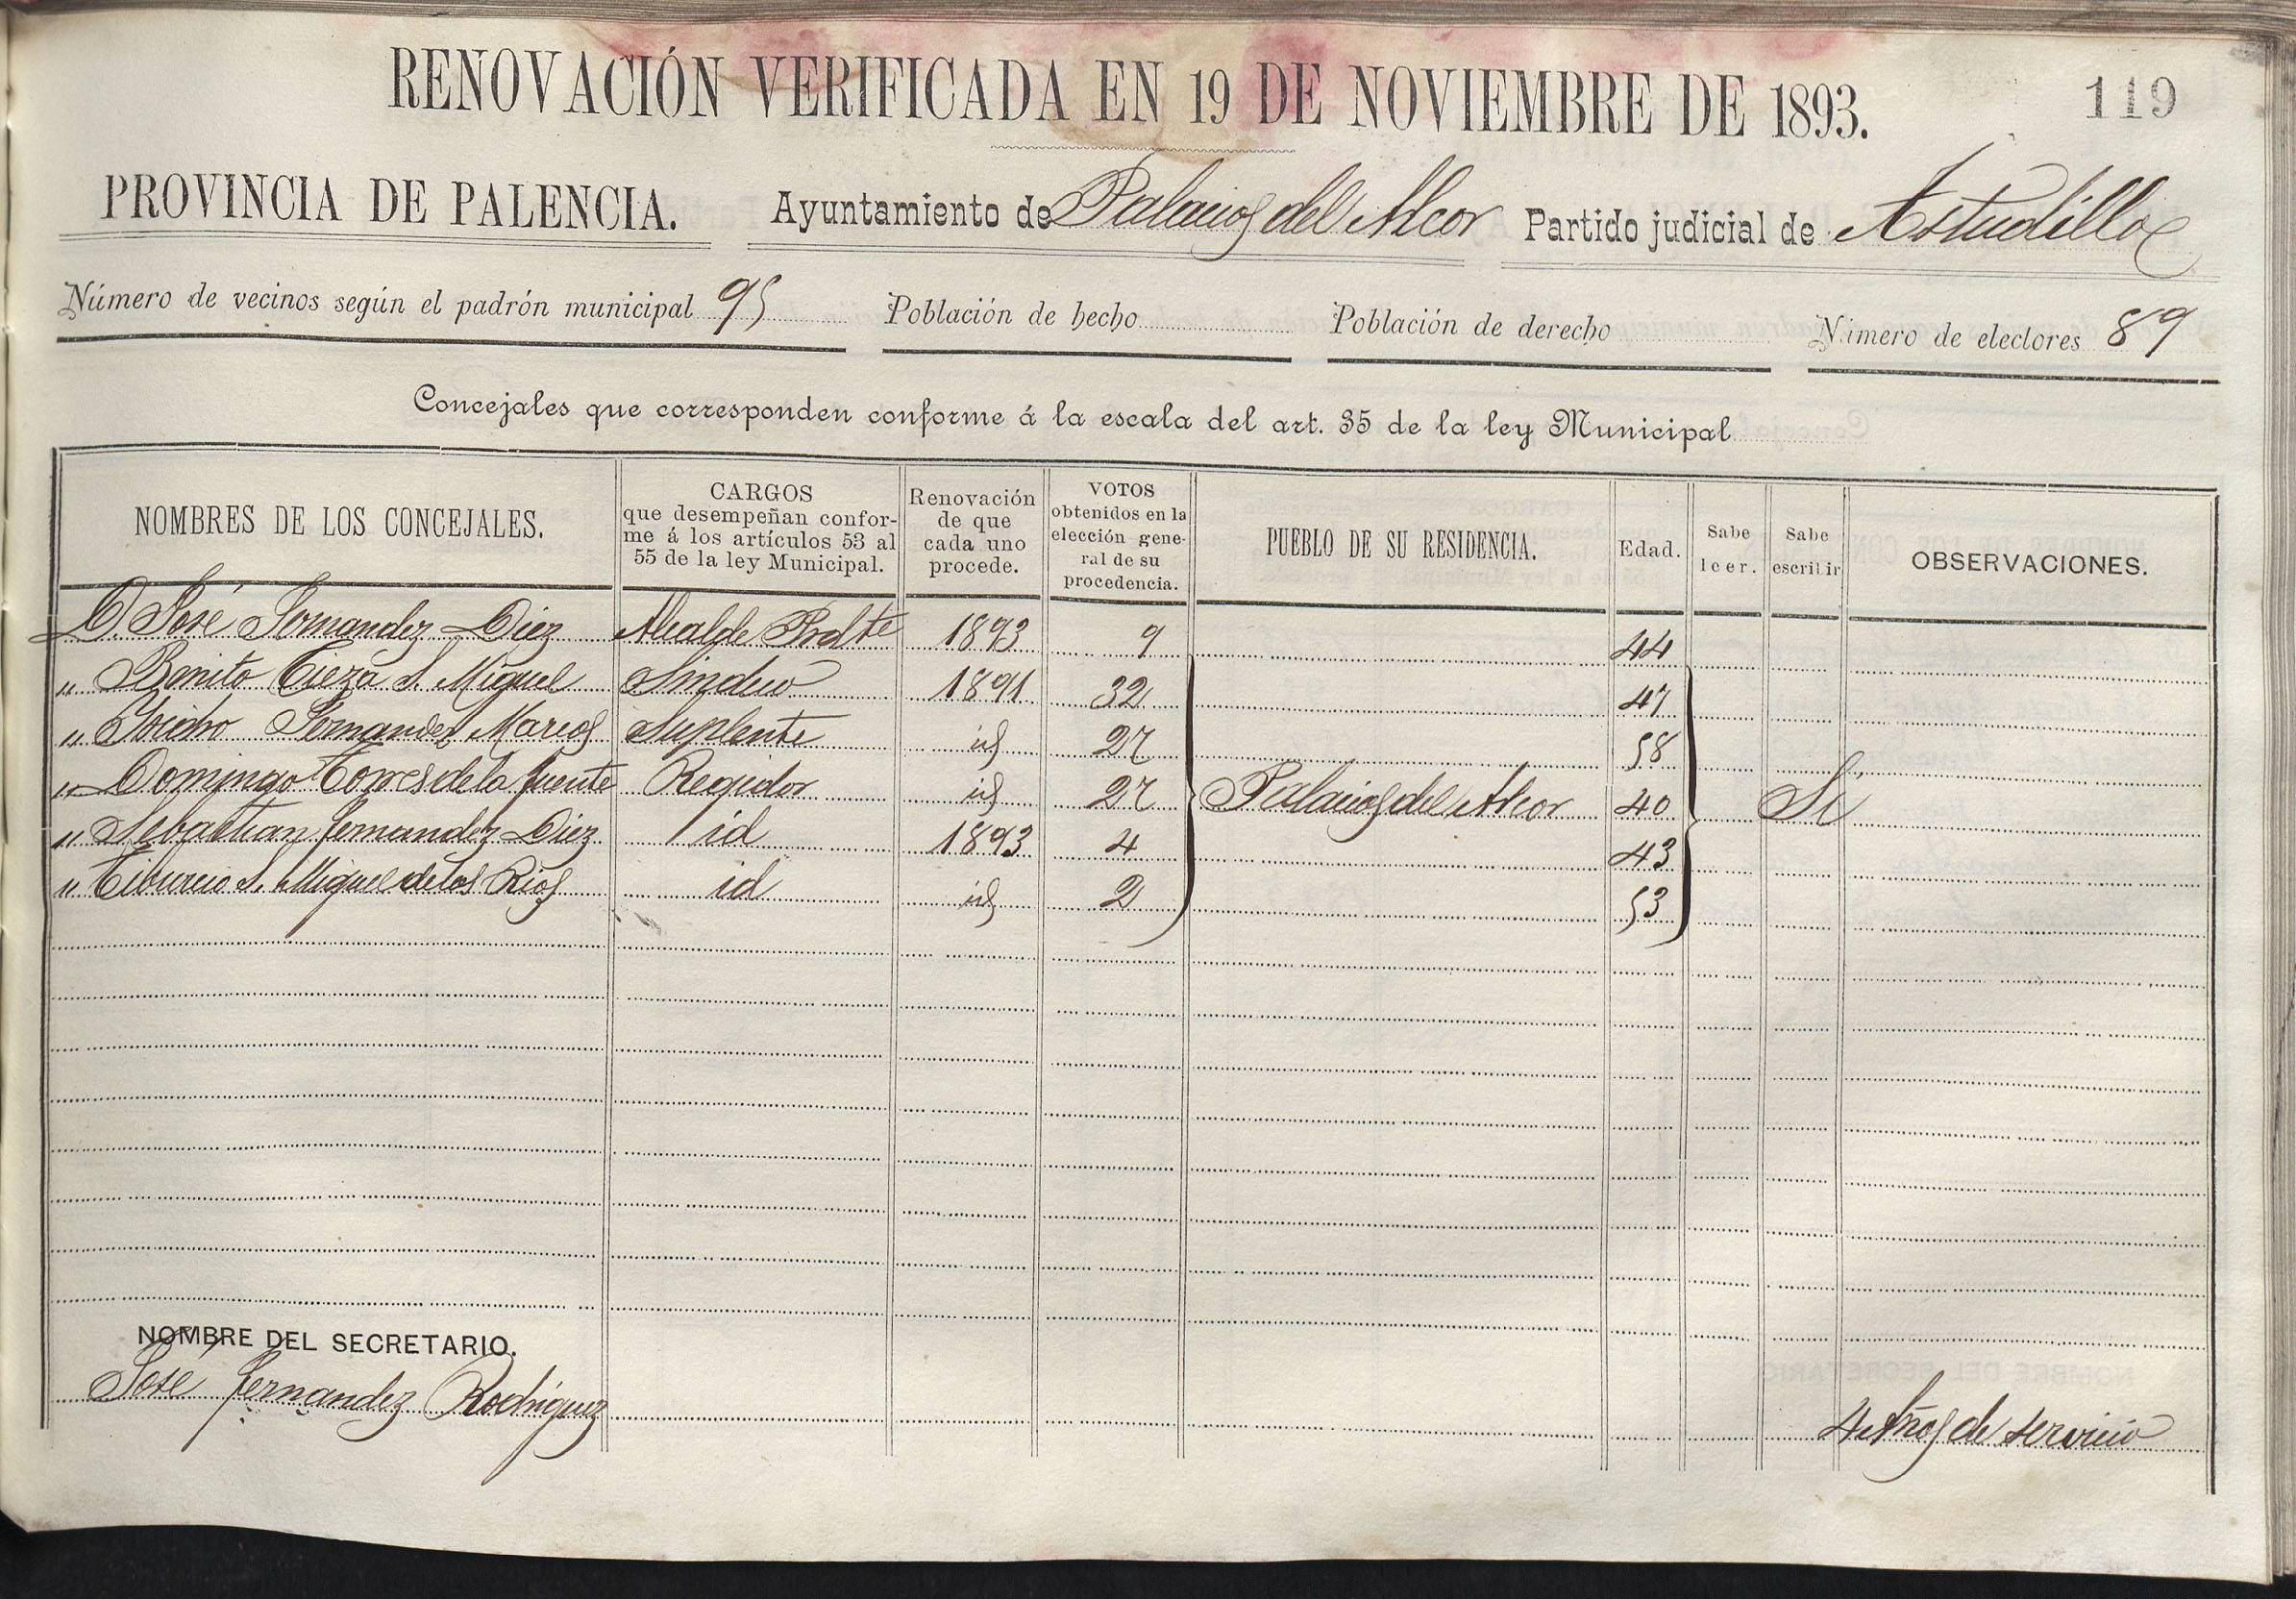 RENOVACIÓN VERIFICADA EN 19 DE NOVIEMBRE DE 1893.
119
PROVINCIA DE PALENCIA. Ayuntamiento de Palacios del Alcor Partido judicial de Astudillo
Número de vecinos según el padrón municipal 95 Población de hecho Población de derecho Número de electores 89
Concejales que corresponden conforme á la escala del art. 35 de la ley Municipal
NOMBRES DE LOS CONCEJALES.
CARGOS
que desempeñan confor-
me á los artículos 53 al
55 de la ley Municipal.
Renovación
de que
cada uno
procede.
VOTOS
obtenidos en la
elección gene-
ral de su
procedencia.
PUEBLO DE SU RESIDENCIA.
Edad.
Sabe
leer.
Sabe
escribir
OBSERVACIONES.
D. José Fernandez Diez Alcalde Prdte 1893 9 44
" Benito Cieza S. Miguel Sindico 1891 32 47
" Isidro Fernandez Marcos Suplente id 27 58
" Domingo Torres de la fuente Regidor id 27 Palacios del Alcor 40 Si
" Sebastian Fernandez Diez id 1893 4 43
" Tiburcio S. Miguel de los Rios id id 2 53
NOMBRE DEL SECRETARIO.
José Fernandez Rodriguez 4 Años de servicio